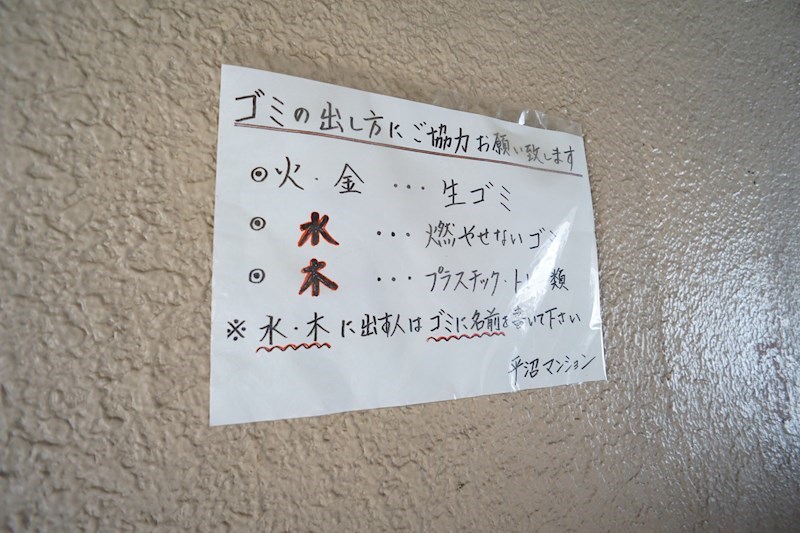 ゴミの出し方にご協力お願い致します
◎火・金 … 生ゴミ
◎ 水 … 燃やせないゴミ
◎ 木 … プラスチック・トレー類
※ 水・木に出す人はゴミに名前を書いて下さい
平沼マンション